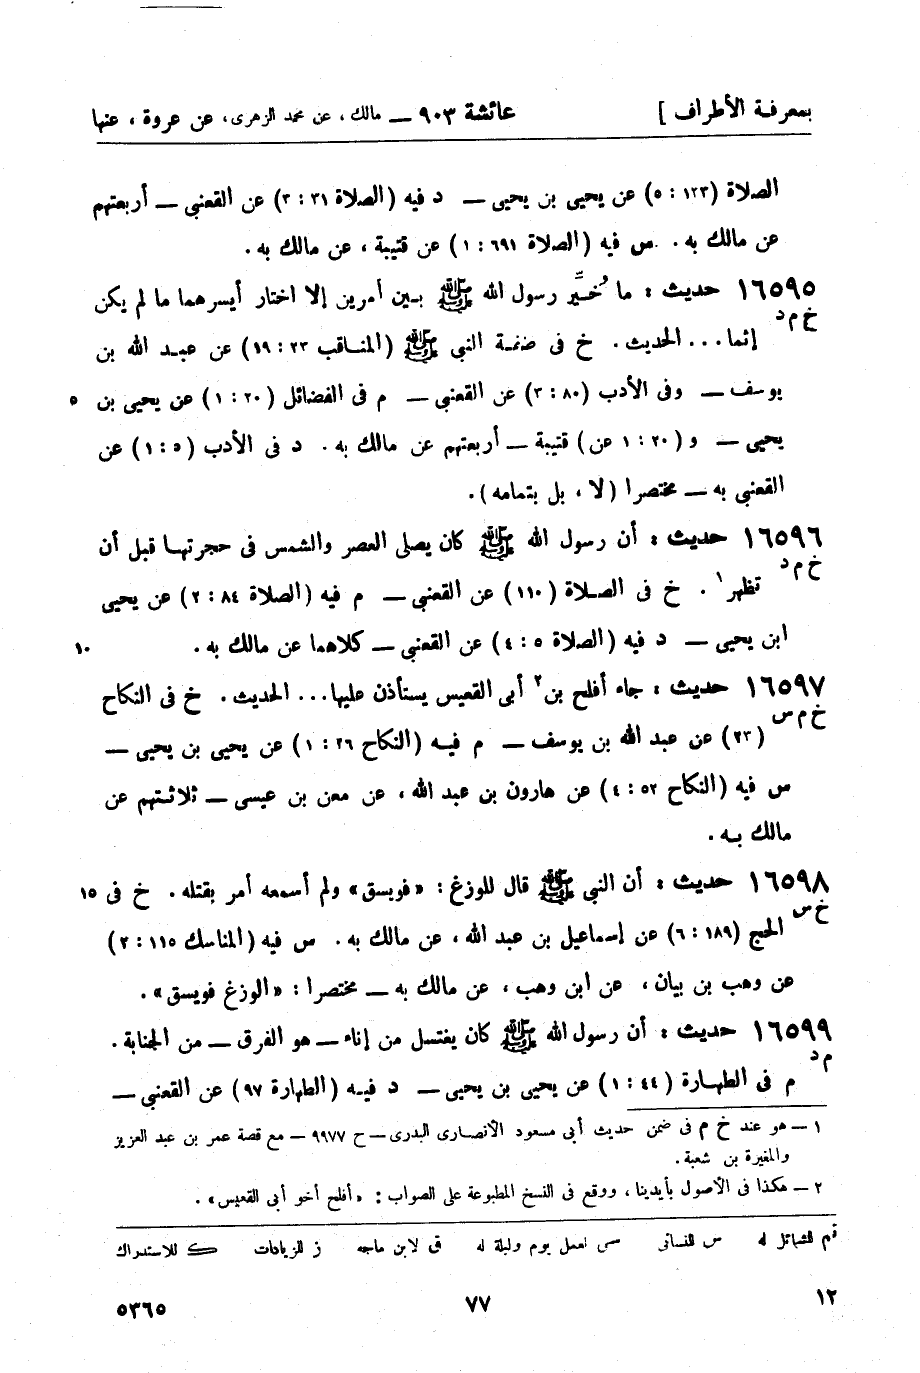 بمعرفة الأطراف ] عائشة ٩٠٣ — مالك ، عن محمد الزهرى، عن عروة ، عنها
الصلاة (١٢٣ : ٥) عن يحيى بن يحيى — د فيه (الصلاة ٣١ : ٣) عن القعنبي — أربعتهم
عن مالك به . س فيه (الصلاة ٦٩١ : ١) عن قتيبة ، عن مالك به .
١٦٥٩٥ حديث : ما خُيِّر رسول الله ﷺ بين أمرين إلا اختار أيسرهما ما لم يكن
خ م د إثما ... الحديث . خ فى صفة النبي ﷺ (المناقب ٢٣ : ١٩) عن عبد الله بن
يوسف — وفى الأدب (٨٠ : ٣) عن القعنبي — م فى الفضائل (٢٠ : ١) عن يحيى بن ٥
يحيى — و (٢٠ : ١ عن) قتيبة — أربعتهم عن مالك به . د فى الأدب (٥ : ١) عن
القعنبي به — مختصرا (لا ، بل بتمامه) .
١٦٥٩٦ حديث : أن رسول الله ﷺ كان يصلى العصر والشمس فى حجرتها قبل أن
خ م د تظهر١ . خ فى الصلاة (١١٠) عن القعنبي — م فيه (الصلاة ٨٤ : ٢) عن يحيى
ابن يحيى — د فيه (الصلاة ٥ : ٤) عن القعنبي — كلاهما عن مالك به . ١٠
١٦٥٩٧ حديث : جاء أفلح بن٢ أبى القعيس يستأذن عليها ... الحديث . خ فى النكاح
خ م س (٢٣) عن عبد الله بن يوسف — م فيه (النكاح ٢٦ : ١) عن يحيى بن يحيى —
س فيه (النكاح ٥٢ : ٤) عن هارون بن عبد الله ، عن معن بن عيسى — ثلاثتهم عن
مالك به .
١٦٥٩٨ حديث : أن النبي ﷺ قال للوزغ : «فويسق» ولم أسمعه أمر بقتله . خ فى ١٥
خ س الحج (١٨٩ : ٦) عن إسماعيل بن عبد الله ، عن مالك به . س فيه (المناسك ١١٥ : ٢)
عن وهب بن بيان ، عن ابن وهب ، عن مالك به — مختصرا : «الوزغ فويسق» .
١٦٥٩٩ حديث : أن رسول الله ﷺ كان يغتسل من إناء — هو الفرق — من الجنابة .
م د م فى الطهارة (٤٤ : ١) عن يحيى بن يحيى — د فيه (الطهارة ٩٧) عن القعنبي —
١ — هو عند خ م فى ضمن حديث أبى مسعود الأنصارى البدرى — ح ٩٩٧٧ — مع قصة عمر بن عبد العزيز
والمغيرة بن شعبة .
٢ — هكذا فى الأصول بأيدينا ، ووقع فى النسخ المطبوعة على الصواب : «أفلح أخو أبى القعيس» .
تم للشمائل له س للنسائى سى لعمل يوم وليلة له ق لابن ماجه ز للزيادات ك للاستدراك
١٢ ٧٧ ٥٣٦٥